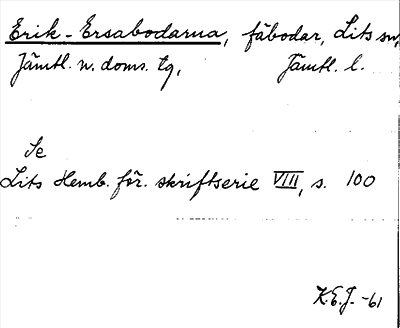 Erik-Ersabodarna, fäbodar, Lits sn,
Jämtl. n. doms. tg, Jämtl. l.
Se
Lits Hemb. för. skriftserie VIII, s. 100
K.E.J. -61